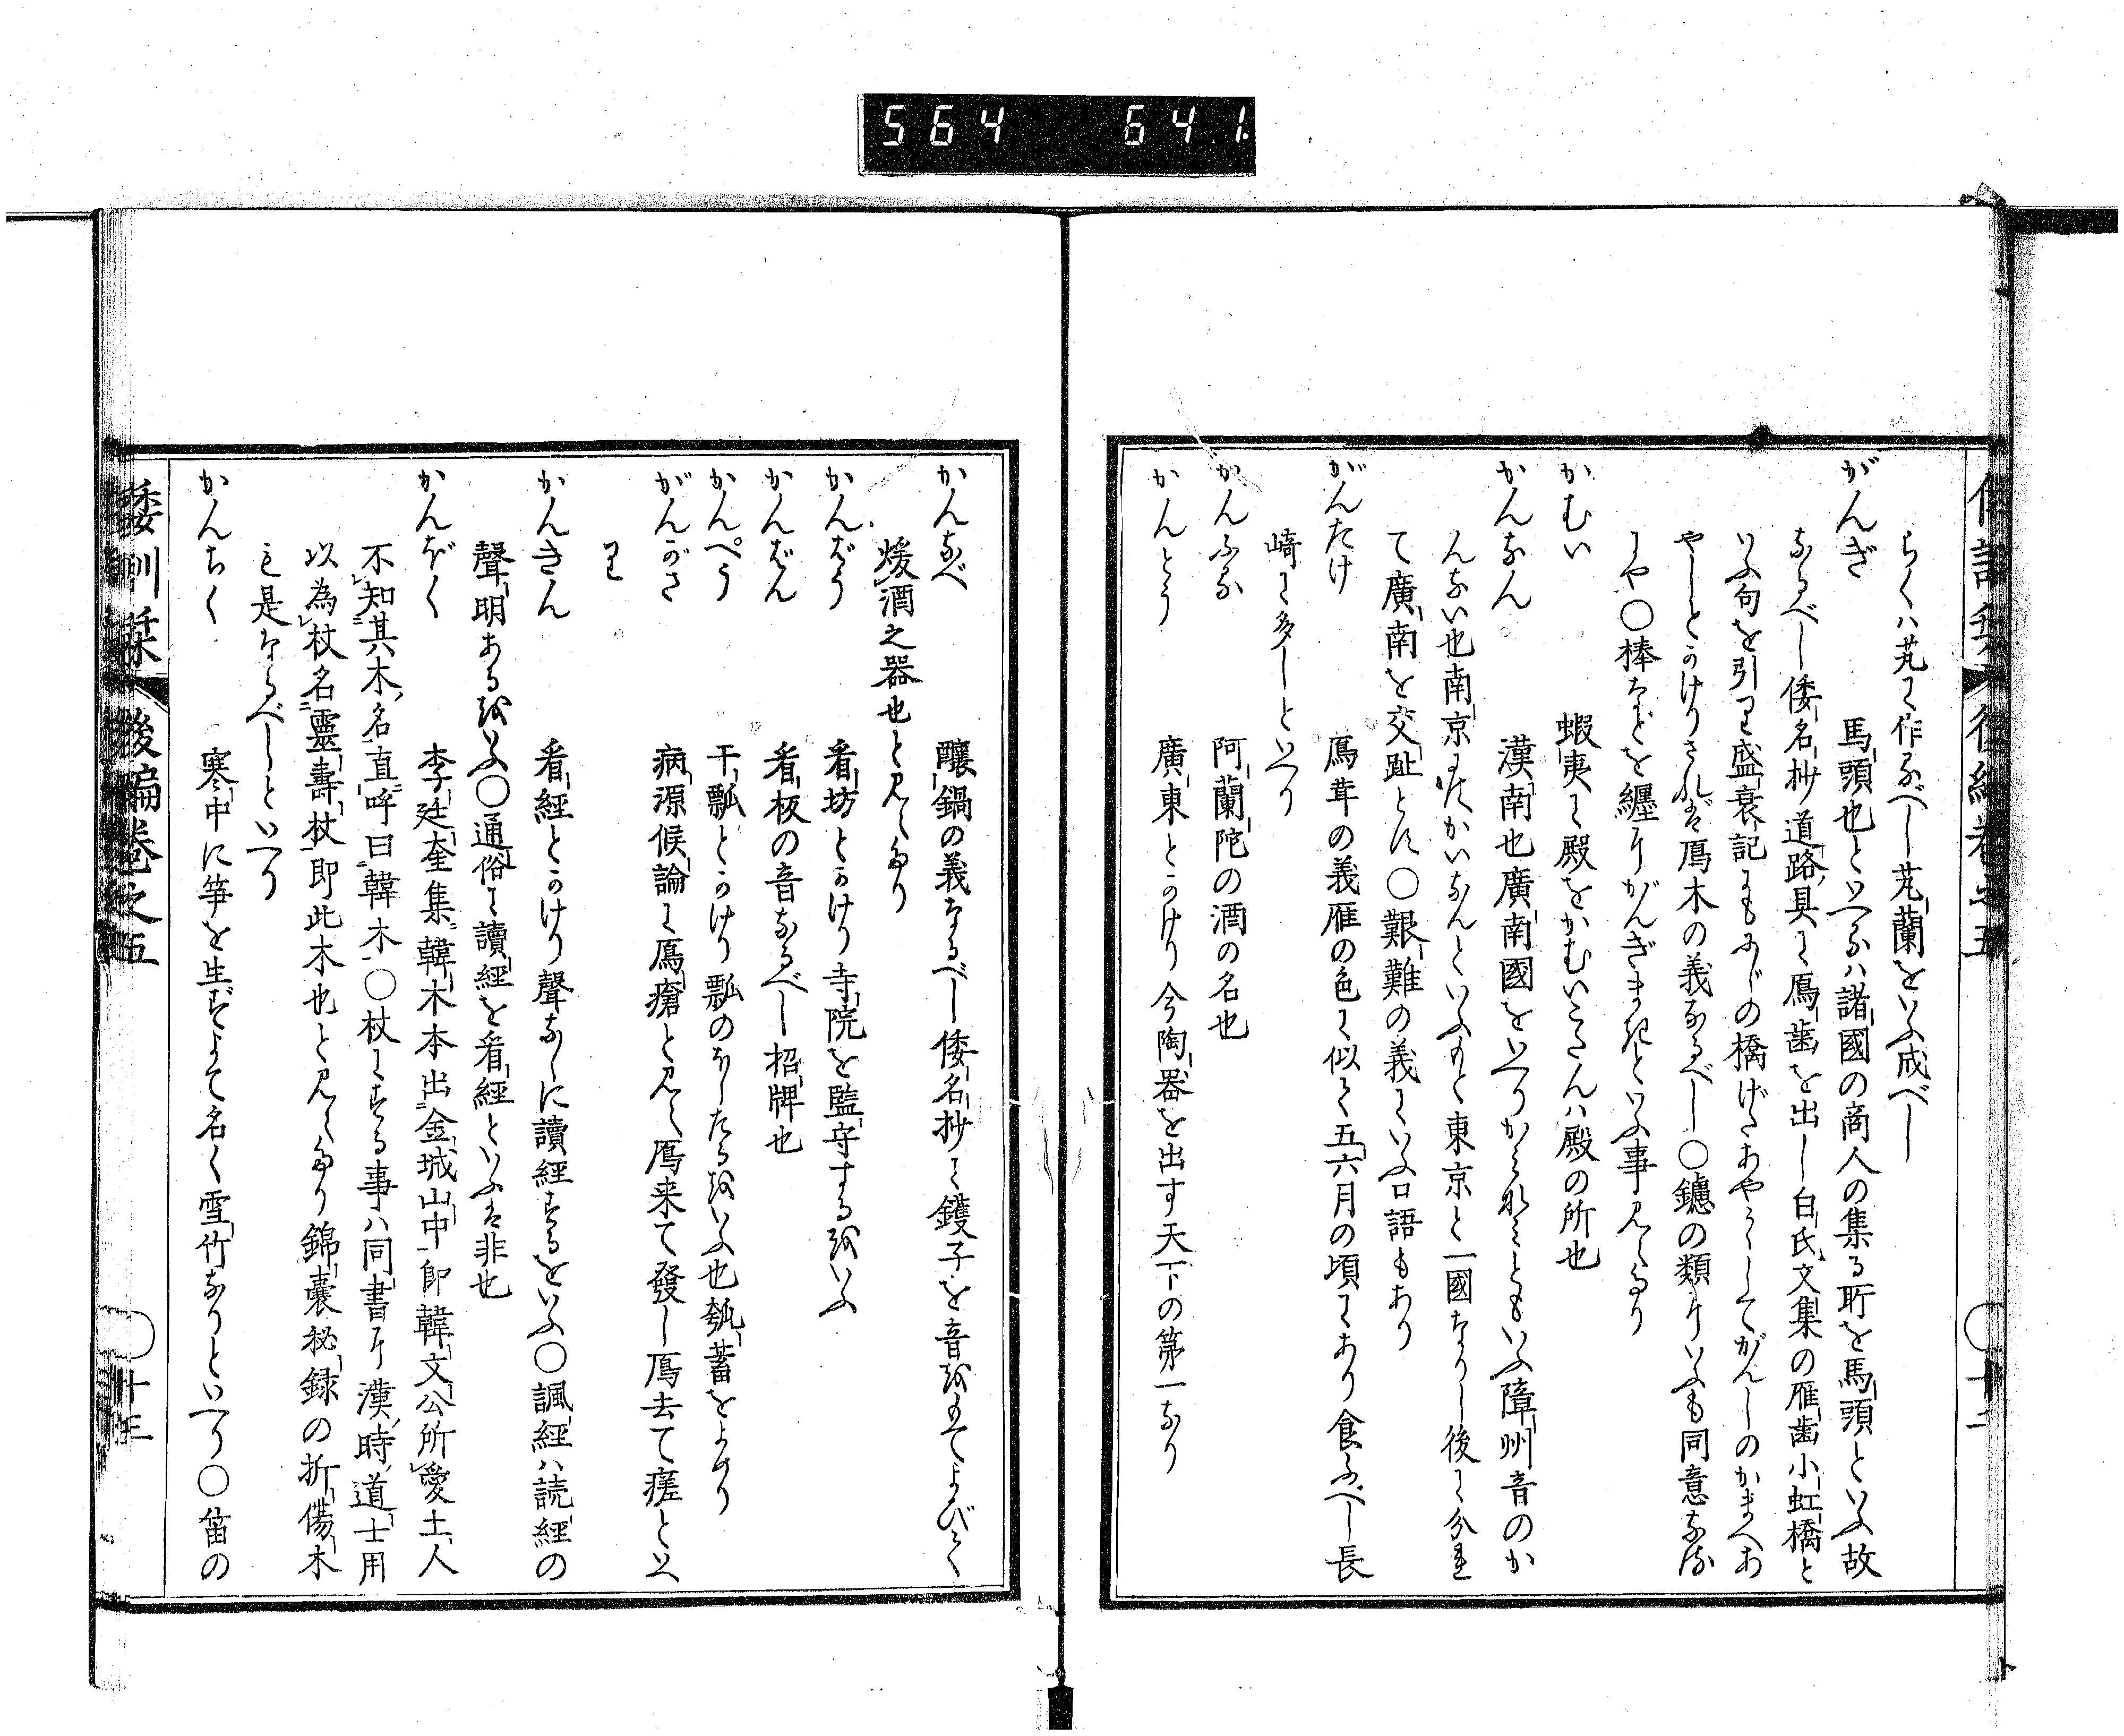 564 641
倭訓栞後編巻之五 ○十二
らくハ芄に作るべし芄蘭をいふ成べし
がんぎ 馬頭也といへるハ諸國の商人の集る所を馬頭といふ故
なるべし倭名抄道路具に鴈歯を出し白氏文集の雁齒小虹橋と
いふ句を引り盛衰記にもふじの橋げたあやうしてがんしのかまへあ
やしとかけりされば鴈木の義なるべし○鑢の類にいふも同意なる
にや○棒などを纏にがんぎまきといふ事見えたり
かむい 蝦夷に殿をかむいといふ
かんなん 漢南也廣南國をいへりかんなミともいふ障州音のか
んない也南京をかいなんといふもと東京と一國なりし後に分れ
て廣南を交趾とす○艱難の義にいふ口語もあり
がんたけ 鴈茸の義雁の色に似て五六月の頃にあり食ふべし長
崎に多しといへり
かんふる 阿蘭陀の酒の名也
かんとう 廣東とかけり今陶器を出す天下の第一なり
かんなべ 釀鍋の義なるべし倭名抄に鑊子を音をもてよびて
煖酒之器也と見えたり
かんばう 看坊とかけり寺院を監守するをいふ
かんばん 看板の音なるべし招牌也
かんぺう 干瓢とかけり瓢のほしたるをいふ也瓠蓄をよめり
がんがさ 病源候論に鴈瘡と見え鴈来て發し鴈去て瘥といへ
り
かんきん 看經とかけり聲なしに讀經するをいふ○諷經ハ読經の
聲明あるをいふ○通俗に讀經を看經といふは非也
かんぼく 李廷奎集韓木本出金城山中即韓文公所愛土人
不知其木名直呼曰韓木○杖にする事ハ同書に漢時道士用
以為杖名靈壽杖即此木也と見えたり錦囊秘録の折傷木
も是なるべしといへり
かんちく 寒中に笋を生ずよて名く雪竹なりといへり○笛の
倭訓栞後編巻之五 ○十三